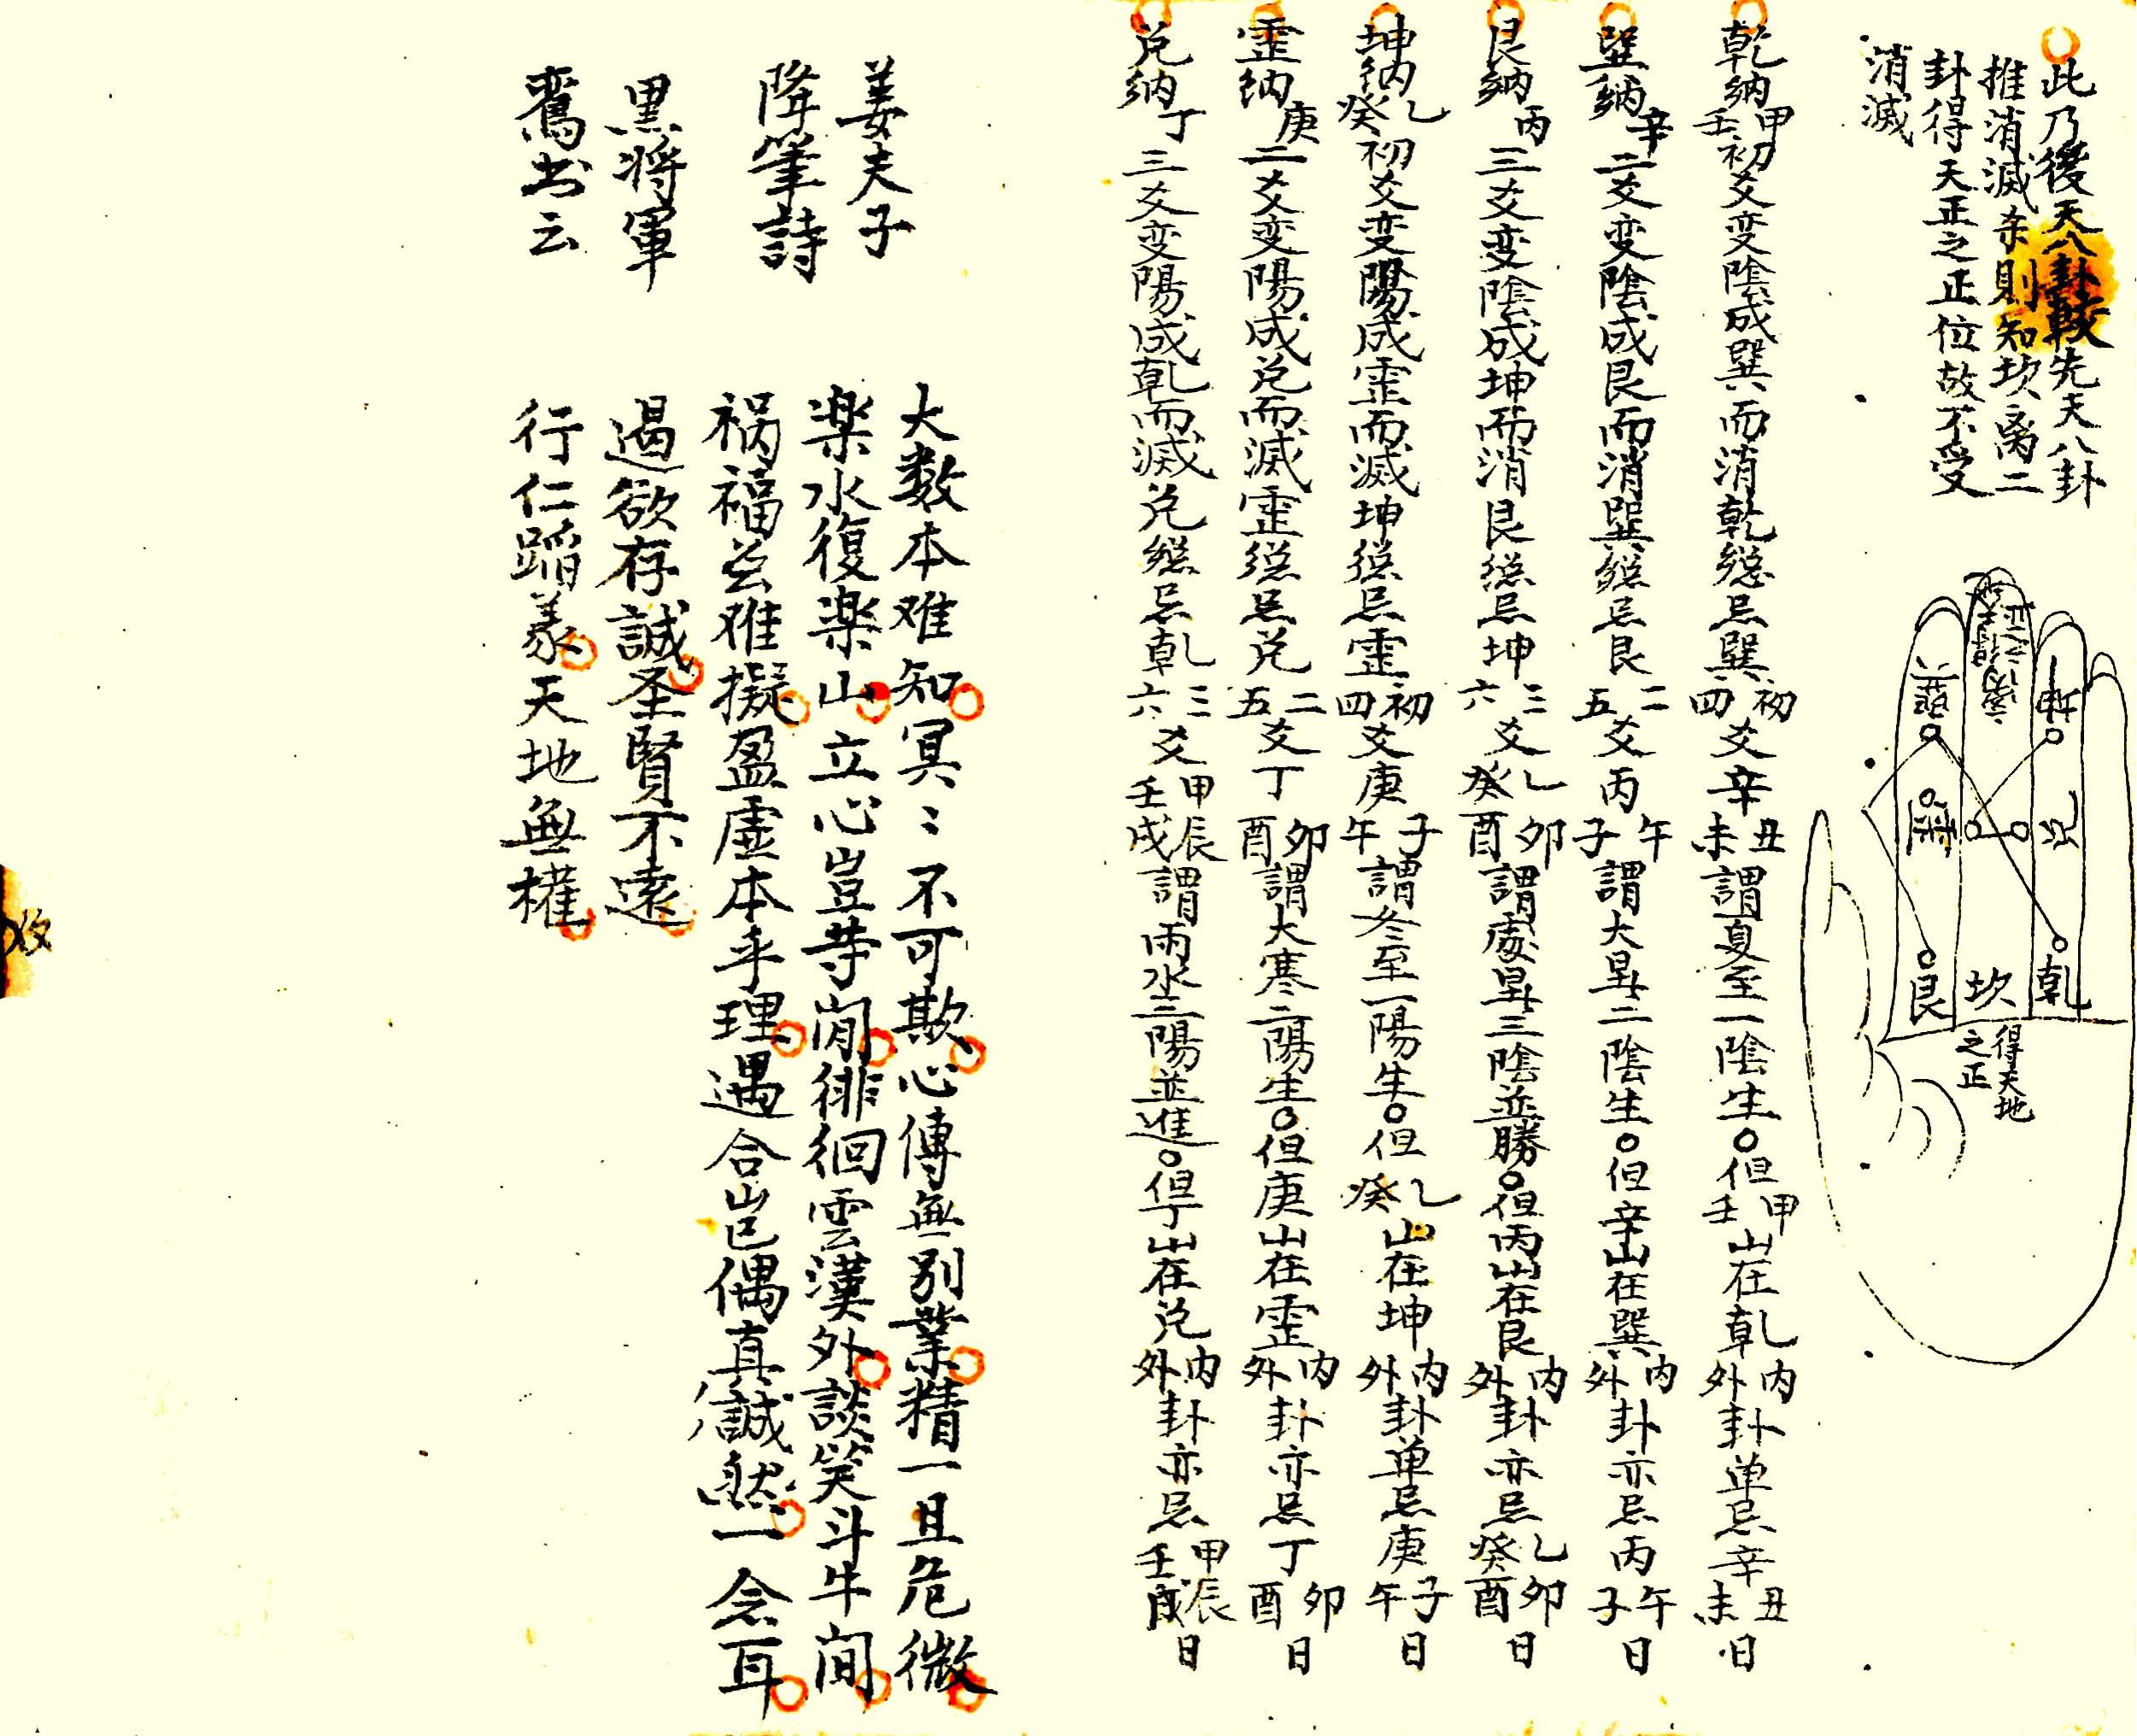 此乃後天八卦較先天八卦
推消滅杀則知坎离二
卦得天正之正位故不受
消滅
乾
坎
艮
兑
坤
得天地
之正
乾纳甲壬初爻变陰成巽而消乾総忌巽初四爻辛丑未謂夏至一陰生○但甲壬山在乾内外卦单忌辛丑未日
巽纳辛二爻变陰成艮而消巽総忌艮二五爻丙午子謂大暑二陰生○但辛山在巽内外卦亦忌丙午子日
艮纳丙三爻变陰成坤而消艮総忌坤三六爻乙癸卯酉謂處暑三陰並勝○但丙山在艮内外卦亦忌乙癸卯酉日
坤纳乙癸初爻变陽成霊而滅坤総忌霊初四爻庚子午謂冬至一陽生○但乙癸山在坤内外卦单忌庚子午日
霊纳庚二爻变陽成兑而滅霊総忌兑二五爻丁卯酉謂大寒二陽生○但庚山在霊内外卦亦忌丁卯酉日
兑纳丁三爻变陽成乾而滅兑総忌乾三六爻甲壬辰戌謂雨水三陽並進○但丁山在兑内外卦亦忌甲壬辰戌日
姜夫子
降筆詩
大数本难知冥〻不可欺心傳無别業精一且危微
楽水復楽山立心豈等閒徘徊雲漢外談笑斗牛间
黑将軍
鸞书云
祸福兹难擬盈虚本乎理遇合岂偶真誠然一念耳
遏欲存誠圣賢不遠
行仁蹈義天地無權